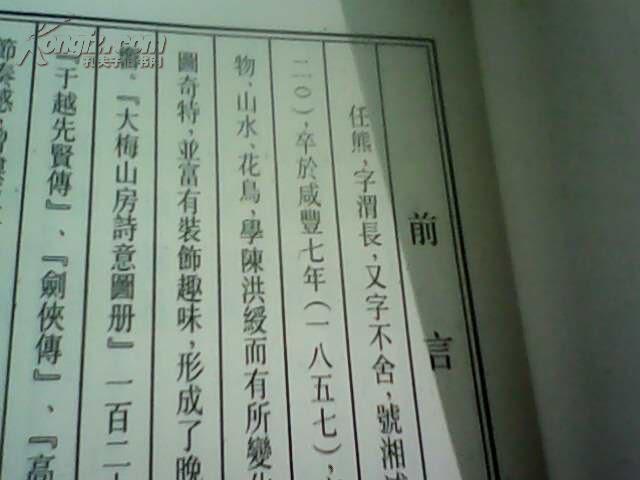 前言
任熊，字渭長，又字不舍，號湘
二〇），卒於咸豐七年（一八五七），
物、山水、花鳥，學陳洪綬而有所變
圖奇特，並富有裝飾趣味，形成了晚
『大梅山房詩意圖册』一百二十
『于越先賢傳』、『劍俠傳』、『高
節奏感，
Kongfz.com
孔夫子旧书网